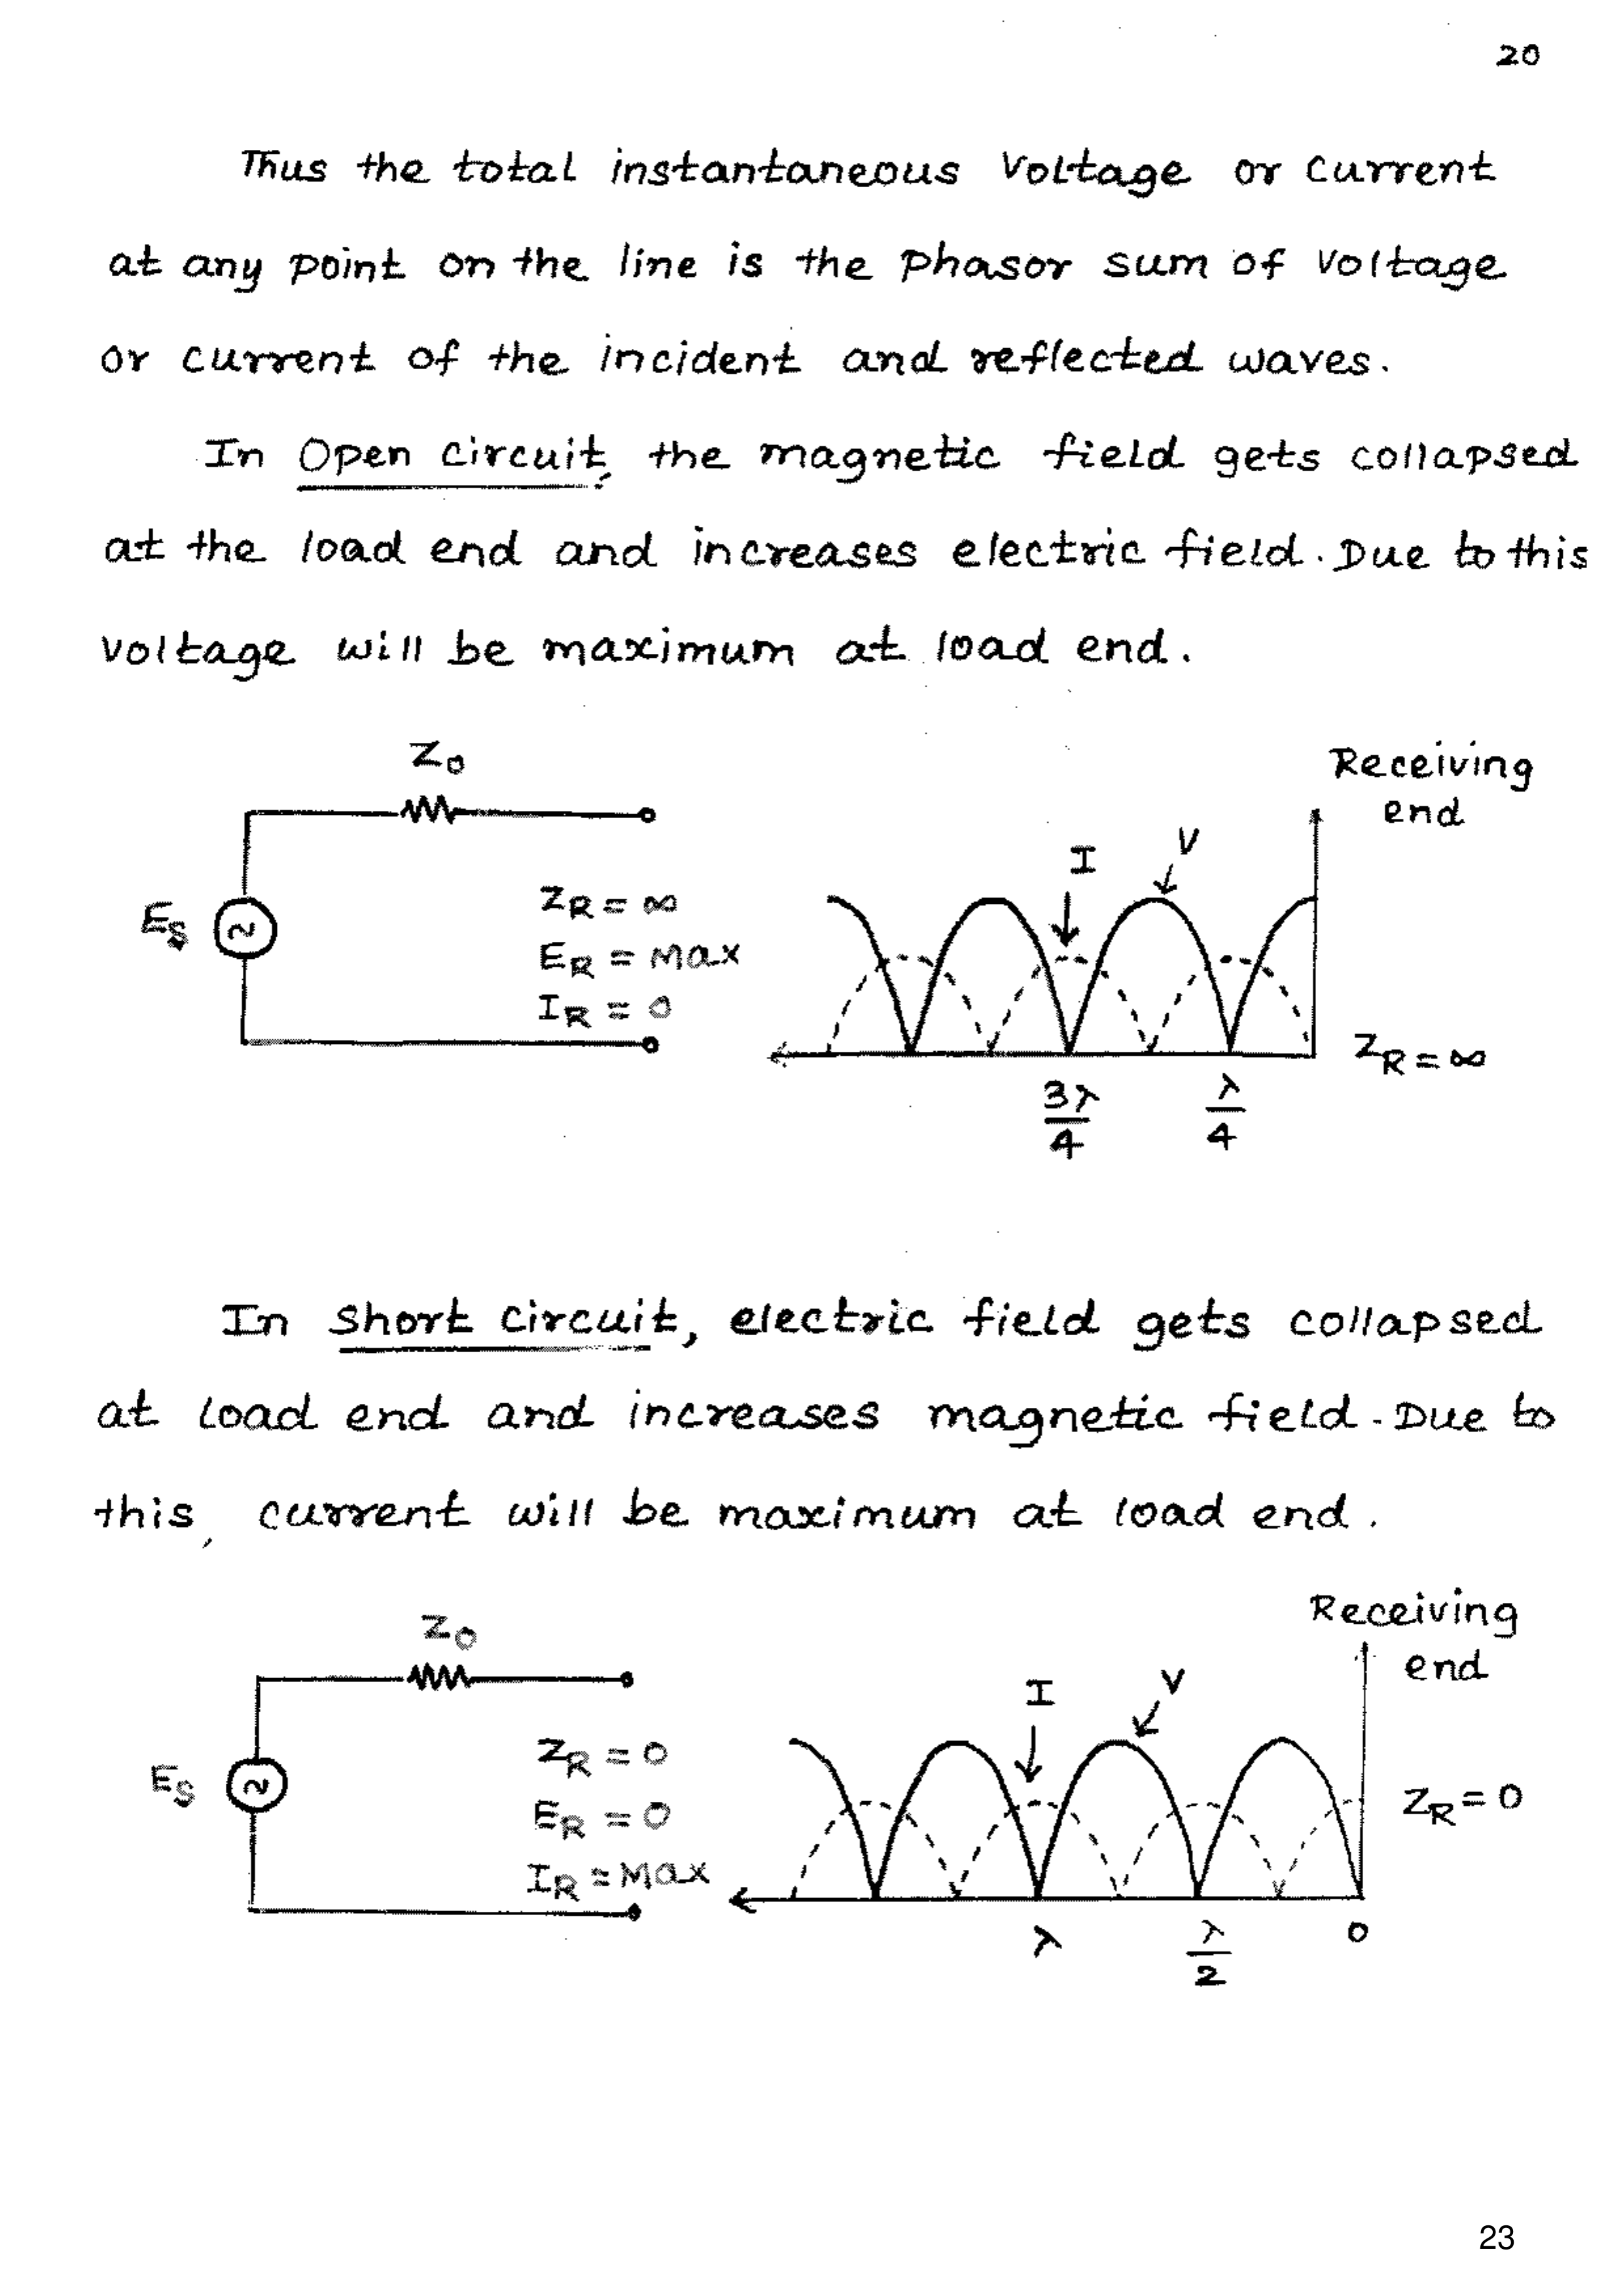 20
Thus the total instantaneous voltage or current
at any point on the line is the phasor sum of voltage
or current of the incident and reflected waves.
In Open circuit, the magnetic field gets collapsed
at the load end and increases electric field. Due to this
voltage will be maximum at load end.
Z₀
Receiving
end
I
V
E_S
~
Z_R = ∞
E_R = Max
I_R = 0
Z_R = ∞
3λ/4
λ/4
In short circuit, electric field gets collapsed
at load end and increases magnetic field. Due to
this, current will be maximum at load end.
Z₀
Receiving
end
I
V
E_S
~
Z_R = 0
E_R = 0
I_R = Max
Z_R = 0
λ
λ/2
0
23